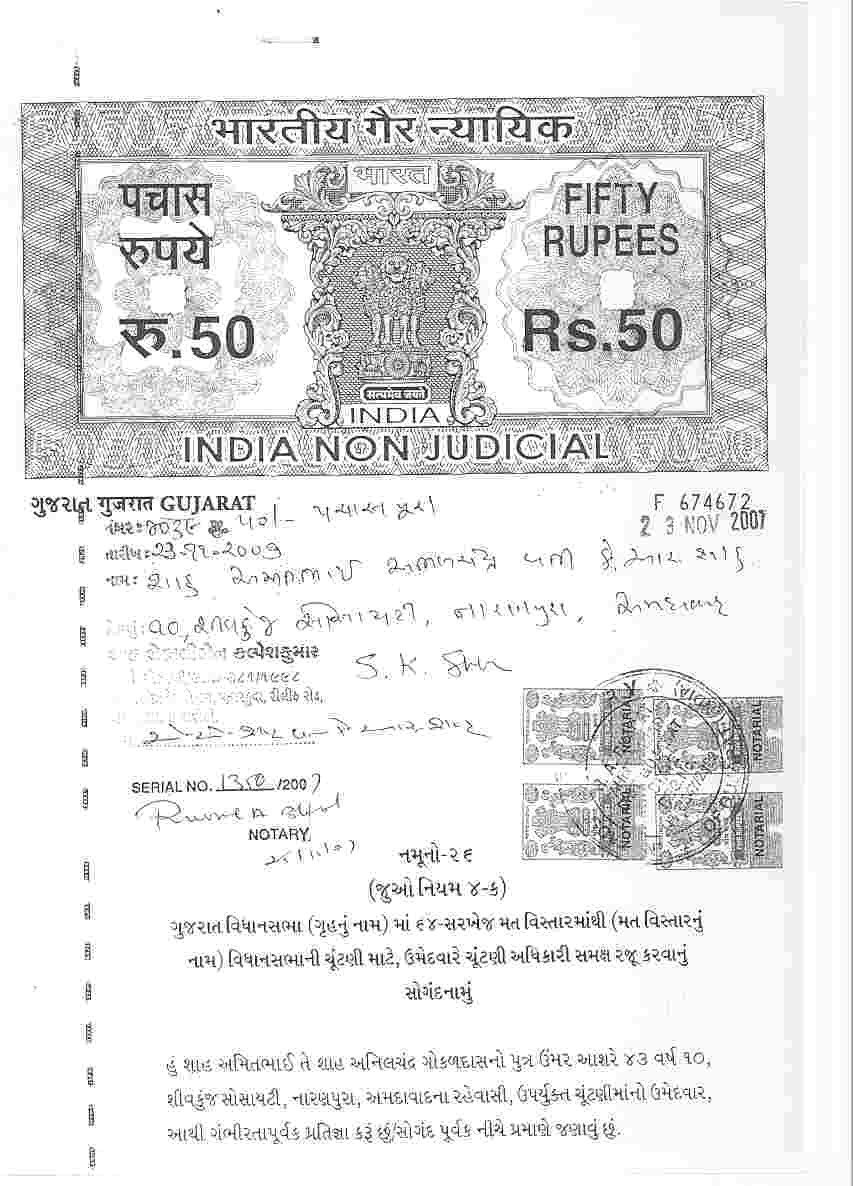 भारतीय गैर न्यायिक
भारत
पचास
रुपये
रु.50
FIFTY
RUPEES
Rs.50
सत्यमेव जयते
INDIA
INDIA NON JUDICIAL
ગુજરાત गुजरात GUJARAT
F 674672
2 3 NOV 2007
નંબર:
૫૦/- પચાસ પુરા
તારીખ: ૨૩-૧૧-૨૦૦૭
નામ: શાહ અમીતભાઈ અનીલચંદ્ર
૧૦, શીવકુંજ સોસાયટી, નારણપુરા, અમદાવાદ
કલ્પેશકુમાર
S. K. Shah
રીલીફ રોડ,
NOTARIAL
NOTARIAL
NOTARIAL
NOTARIAL
SERIAL NO. 1350 /2007
NOTARY
નમૂનો-૨૬
(જુઓ નિયમ ૪-ક)
ગુજરાત વિધાનસભા (ગૃહનું નામ) માં ૬૪-સરખેજ મત વિસ્તારમાંથી (મત વિસ્તારનું
નામ) વિધાનસભાની ચૂંટણી માટે, ઉમેદવારે ચૂંટણી અધિકારી સમક્ષ રજૂ કરવાનું
સોગંદનામું
હું શાહ અમિતભાઈ તે શાહ અનિલચંદ્ર ગોકળદાસનો પુત્ર ઉંમર આશરે ૪૩ વર્ષ ૧૦,
શીવકુંજ સોસાયટી, નારણપુરા, અમદાવાદના રહેવાસી, ઉપર્યુક્ત ચૂંટણીમાંનો ઉમેદવાર,
આથી ગંભીરતાપૂર્વક પ્રતિજ્ઞા કરૂં છું/સોગંદ પૂર્વક નીચે પ્રમાણે જણાવું છું.